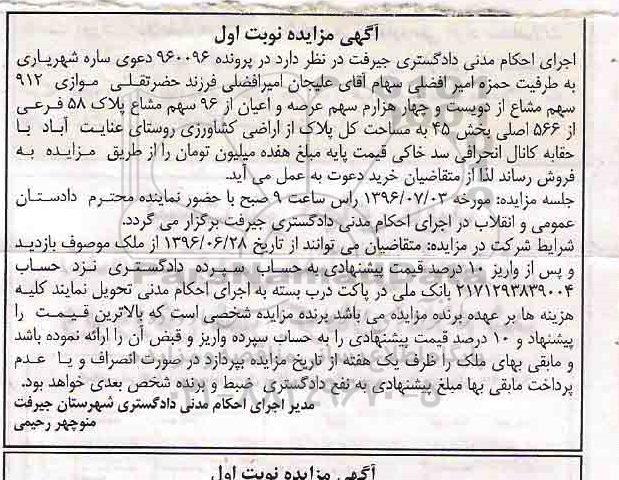 آگهی مزایده نوبت اول
اجرای احکام مدنی دادگستری جیرفت در نظر دارد در پرونده ۹۶۰۰۹۶ دعوی ساره شهریاری
به طرفیت حمزه امیر افضلی سهام آقای علیجان امیرافضلی فرزند حضرتقلی موازی ۹۱۲
سهم مشاع از دویست و چهار هزارم سهم عرصه و اعیان از ۹۶ سهم مشاع پلاک ۵۸ فرعی
از ۵۶۶ اصلی بخش ۴۵ به مساحت کل پلاک از اراضی کشاورزی روستای عنایت آباد با
حقابه کانال انحرافی سد خاکی قیمت پایه مبلغ هفده میلیون تومان را از طریق مزایده به
فروش رساند لذا از متقاضیان خرید دعوت به عمل می آید.
جلسه مزایده: مورخه ۱۳۹۶/۰۷/۰۳ راس ساعت ۹ صبح با حضور نماینده محترم دادستان
عمومی و انقلاب در اجرای احکام مدنی دادگستری جیرفت برگزار می گردد.
شرایط شرکت در مزایده: متقاضیان می توانند از تاریخ ۱۳۹۶/۰۶/۲۸ از ملک موصوف بازدید
و پس از واریز ۱۰ درصد قیمت پیشنهادی به حساب سپرده دادگستری نزد حساب
۲۱۷۱۲۹۳۸۳۹۰۰۴ بانک ملی در پاکت درب بسته به اجرای احکام مدنی تحویل نمایند کلیه
هزینه ها بر عهده برنده مزایده می باشد برنده مزایده شخصی است که بالاترین قیمت را
پیشنهاد و ۱۰ درصد قیمت پیشنهادی را به حساب سپرده واریز و قبض آن را ارائه نموده باشد
و مابقی بهای ملک را ظرف یک هفته از تاریخ مزایده بپردازد در صورت انصراف و یا عدم
پرداخت مابقی بها مبلغ پیشنهادی به نفع دادگستری ضبط و برنده شخص بعدی خواهد بود.
مدیر اجرای احکام مدنی دادگستری شهرستان جیرفت
منوچهر رحیمی
آگهی مزایده نوبت اول